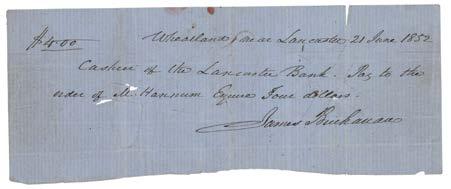 $4.00 Wheatland near Lancaster 21 June 1852
Cashier of the Lancaster Bank. Pay to the
order of M. Hannum Esquire Four dollars.
James Buchanan